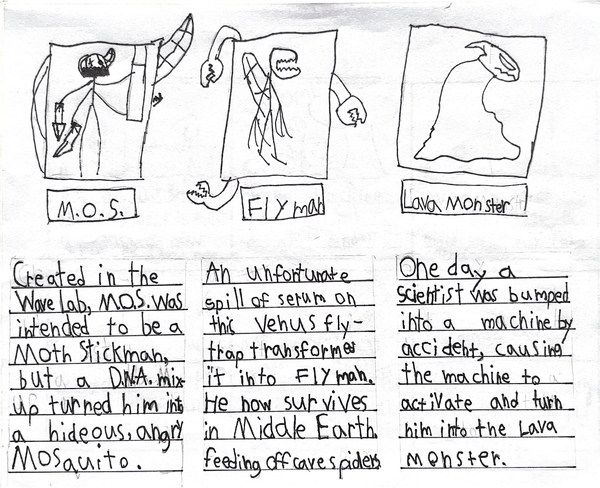 M.O.S.
Flyman
Lava Monster
Created in the
Wave Lab, M.O.S. was
intended to be a
Moth Stickman,
but a D.N.A. mix-
up turned him into
a hideous, angry
MOSquito.
An unfortunate
spill of serum on
this Venus fly-
trap transformed
it into Flyman.
He now survives
in Middle Earth
feeding off cave spiders.
One day a
scientist was bumped
into a machine by
accident, causing
the machine to
activate and turn
him into the Lava
monster.